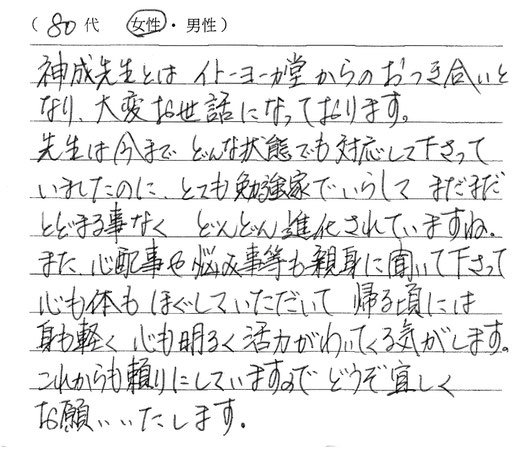 (80代 女性・男性)
神成先生とは イトーヨーカ堂からのおつき合いと
なり、大変お世話になっております。
先生は今まで どんな状態でも対応して下さって
いましたのに、とても勉強家でいらして まだまだ
とどまる事なく どんどん進化されていますね。
また 心配事や悩み事等も親身に聞いて下さって
心も体も ほぐしていただいて 帰る頃には
身も軽く 心も明るく活力がわいてくる気がします。
これからも頼りにしていますので どうぞ宜しく
お願いいたします。